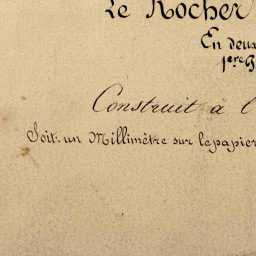 Le Rocher
En deux
1ère
Construit à l
Soit: un Millimètre sur le papier